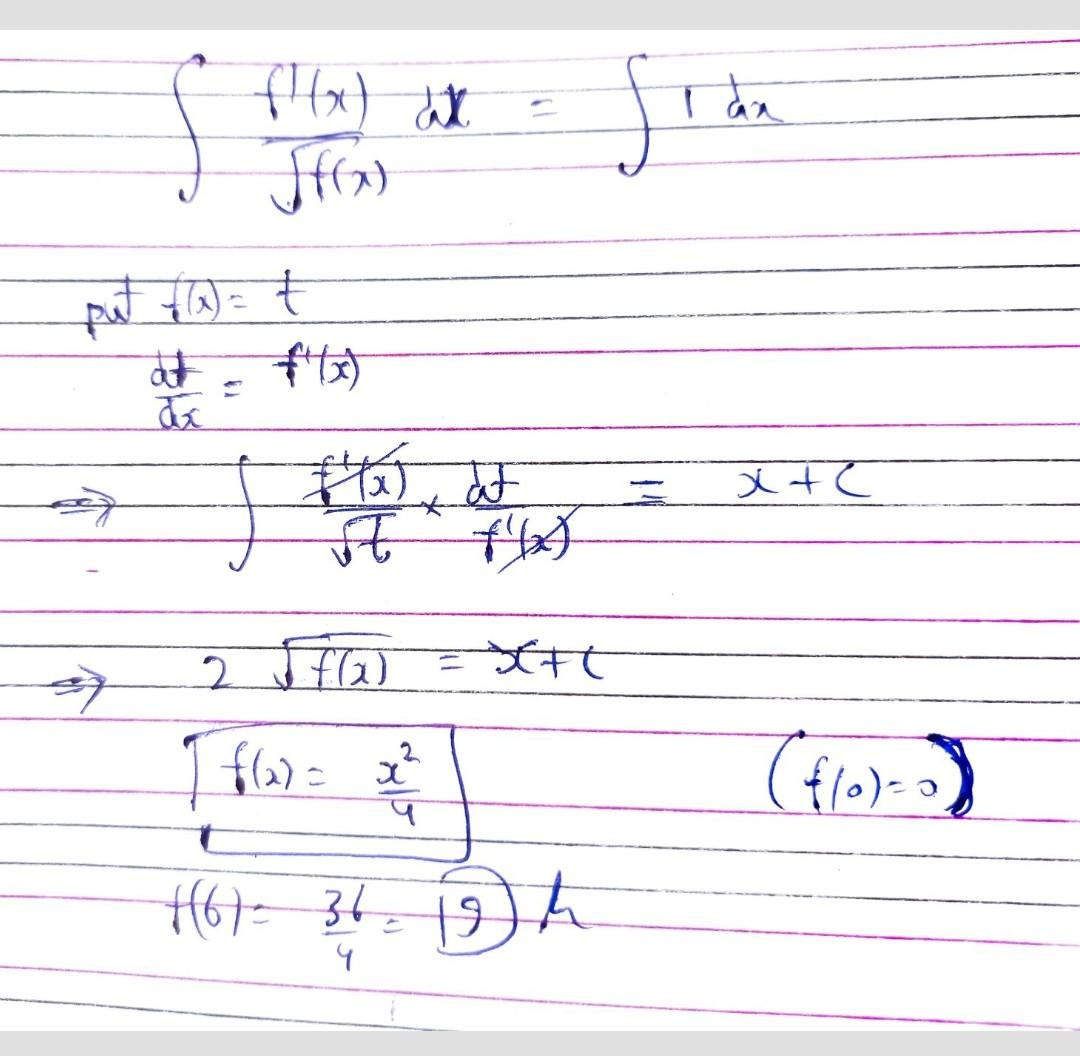 ∫ f'(x)/√f(x) dx = ∫ 1 dx
put f(x) = t
dt/dx = f'(x)
⇒ ∫ f'(x)/√t × dt/f'(x) = x + C
⇒ 2 √f(x) = x + C
f(x) = x²/4 (f(0) = 0)
f(6) = 36/4 = 9